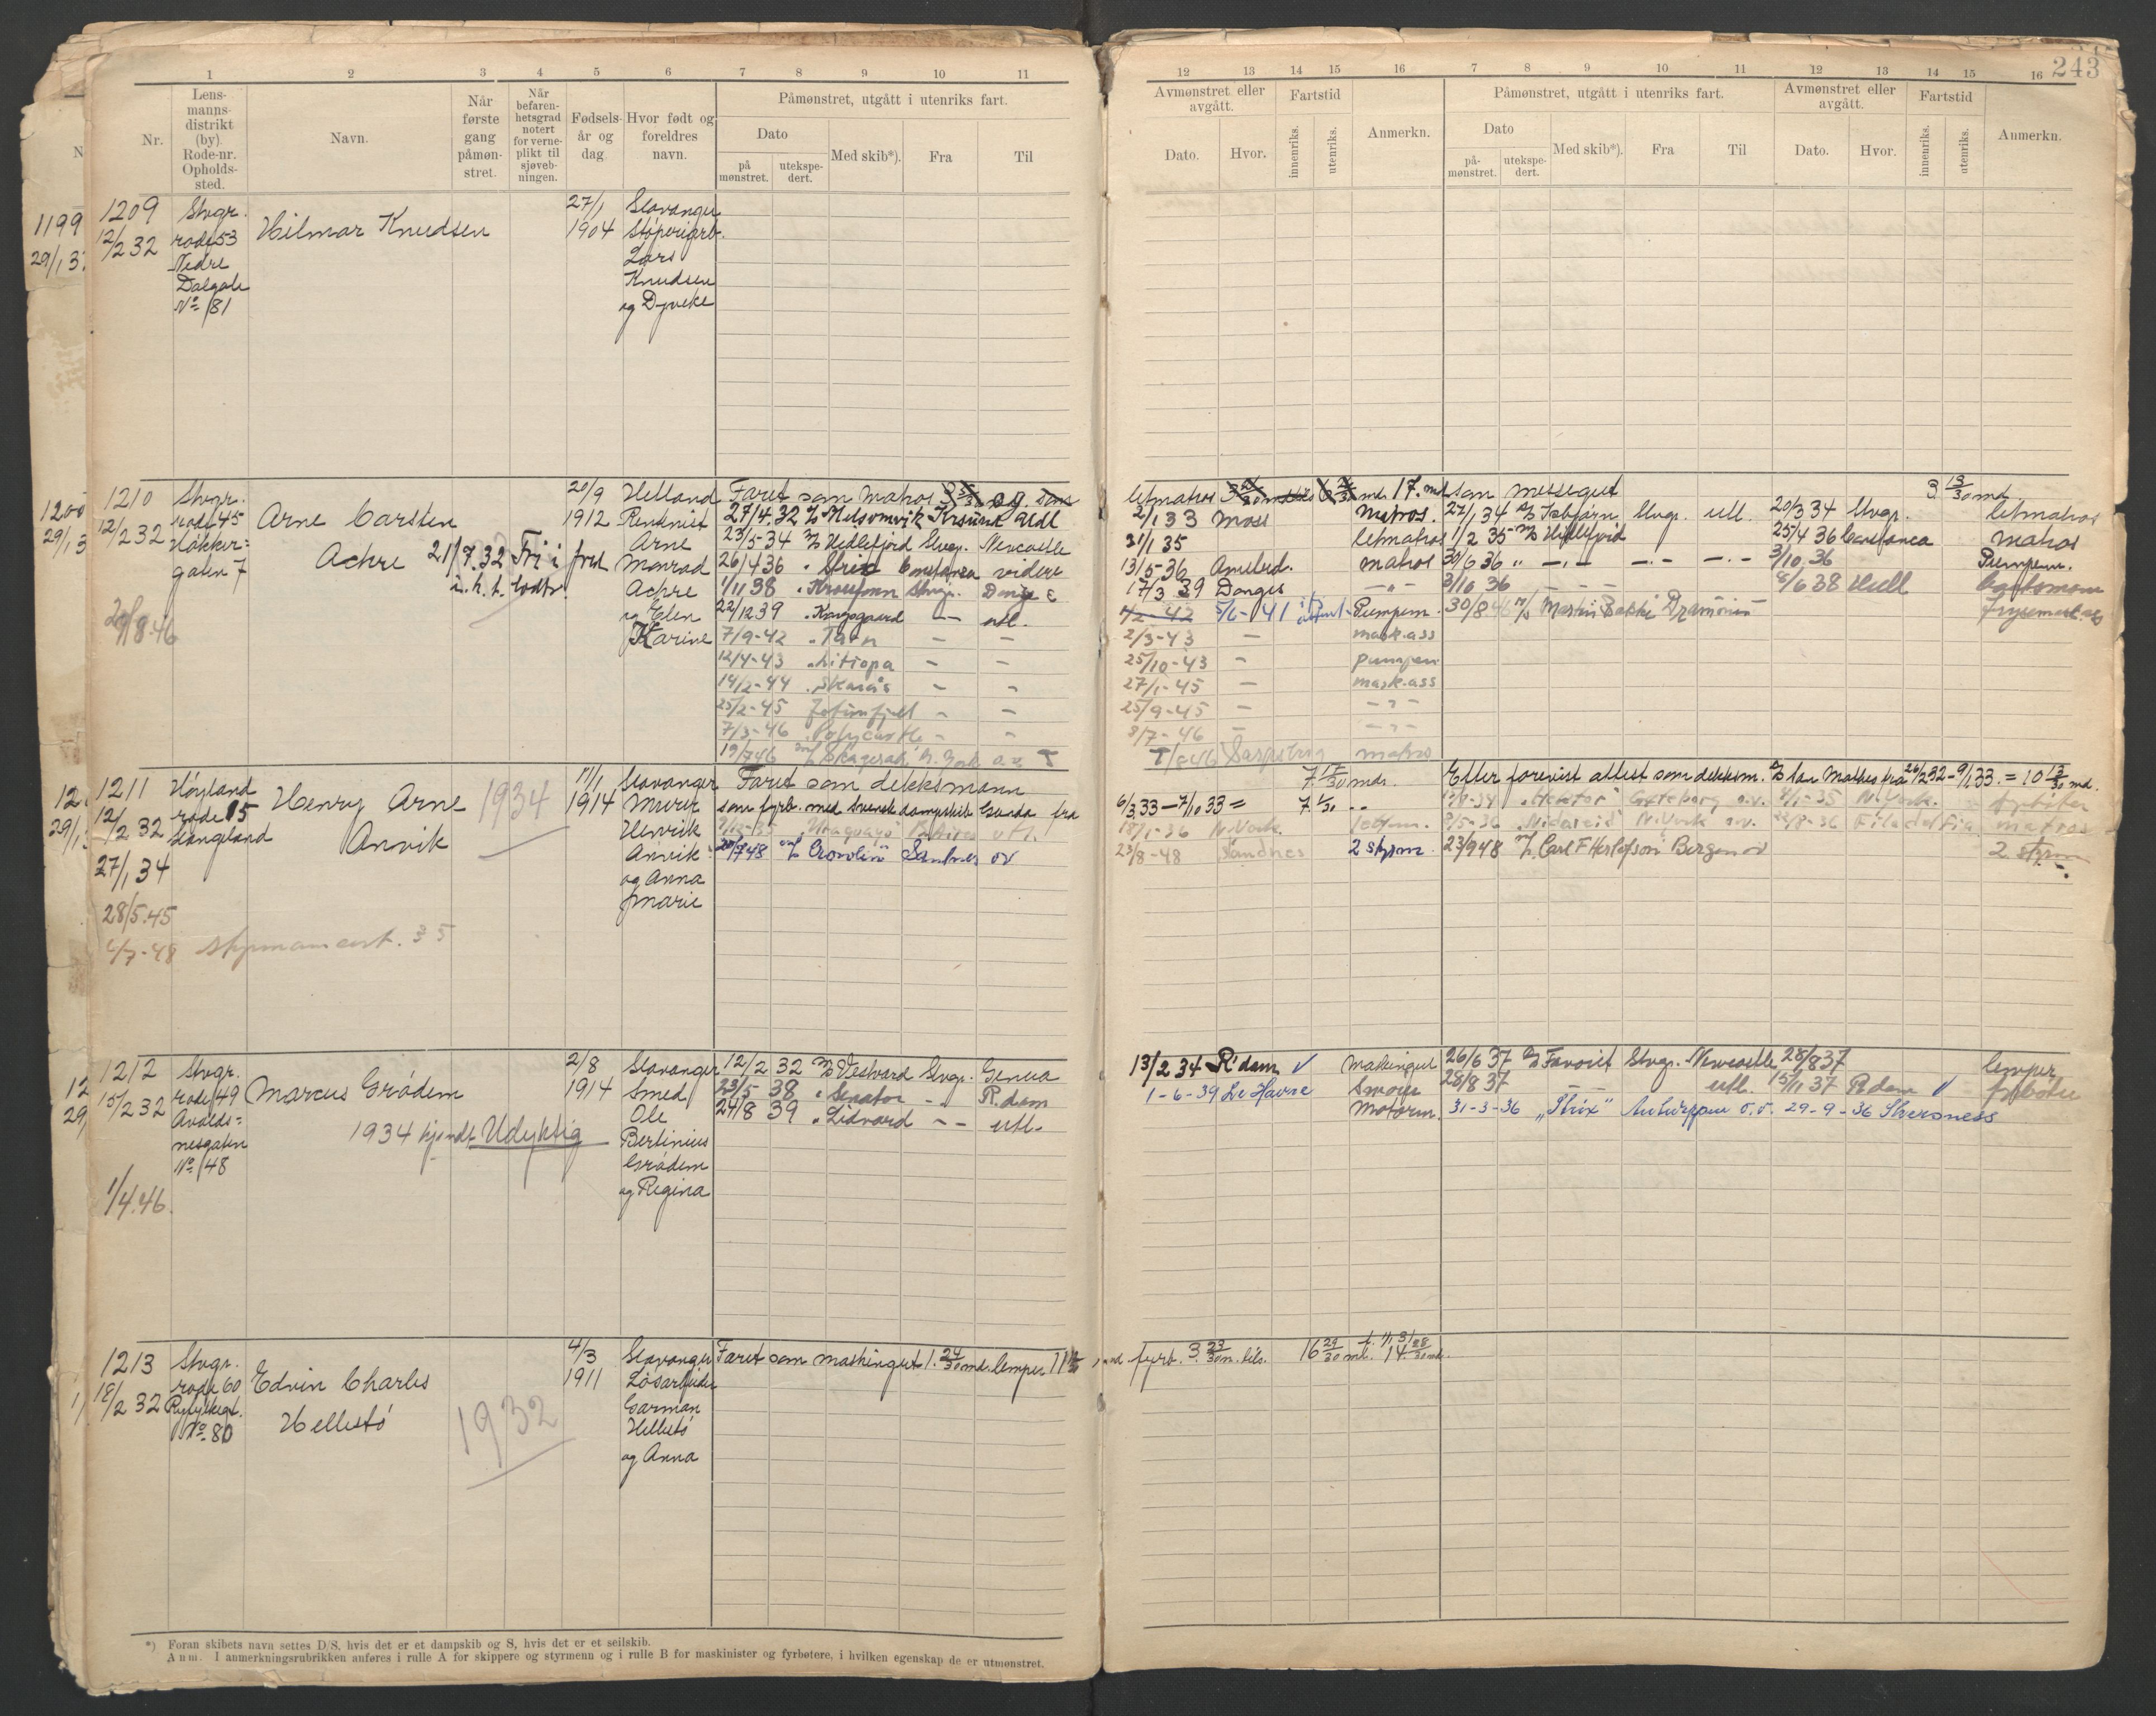 1 2 3 4 5 6 7 8 9 10 11
Nr.
Lens-
manns-
distrikt
(by).
Rode-nr.
Opholds-
sted.
Navn.
Når
første
gang
påmøn-
stret.
Når
befaren-
hetsgrad
notert
for verne-
plikt til
sjøveb-
ningen.
Fødsels-
år og
dag
Hvor født og
foreldres
navn.
Påmønstret, utgått i utenriks fart.
Dato
på
mønstret.
utekspe-
dert.
Med skib*).
Fra
Til
12 13 14 15 16 7 8 9 10 11 12 13 14 15 16 243
Avmønstret eller
avgått.
Dato.
Hvor.
Fartstid
innenriks.
utenriks.
Anmerkn.
Påmønstret, utgått i utenriks fart.
Dato
på-
mønstret.
utekspe-
dert.
Med skib*).
Fra
Til
Avmønstret eller
avgått.
Dato.
Hvor.
Fartstid
innenriks.
utenriks.
Anmerkn.
1199
29/1 3
1209
12/2 32
Stvgr.
rode 53
Nedre
Dalgate
No 81
Hilmar Knudsen
27/1
1904
Stavanger
Støperiarb.
Lars
Knudsen
og Dyveke
1200
29/1 3
1210
12/2 32
Stvgr.
rode 45
Håkker=
gaten 7
29/8-46
Arne Carsten
Achre 21/7.32 Fri i fred
i. h. t. lodtr.
20/9
1912
Helland
Rentenist
Arne
Monrad
Achre
og Elen
Karine
Faret som matros og
27/4.32 Nelsomvik Krsund Utl
23/5-34 Hedlefjord Stvgr. Newcastle
26/4 36 Strix Constanza videre
1/11 38 Stvgr. Donges
22/12 39 utl.
7/9-42 Tarn – –
12/4-43 Litiopa – –
14/2-44 Skarås – –
25/2-45 Jotunfjell – –
7/3-46 Polycastle – –
19/7 46 Skagerak
letmatros 17. md som messegut 3 13/30 md
2/1 33 Moss matros. 27/1 34 Isbjørn Stvgr. utl. 20/3 34 Stvgr. letmatros
31/1 35 letmatros 1/2 35 Hedlefjord 25/4 36 Constanca matros
13/5-36 matros 30/6 36 " –.– –.– –.– 3/10 36 Pumpem.
17/3 39 Donges –"– 3/10 36 – – – 8/6 38 Hull
4/2-42 5/6-41 Pumpem. 30/8.46 Martin Bakke Drammen
2/3-43 – mask.ass
25/10-43 – pumpem
27/1-45 – mask.ass
25/9-45 – –"–
8/7-46 – –"–
Sarpsborg matros
12
29/1
1211
12/2 32
27/1 34
28/5.45
6/7-48 styrmannsert. 35
Høyland
rode 15
Langland
Henry Arne
Anvik
1934
11/1
1914
Stavanger
Murer
Henrik
Anvik
og Anna
Marie
Faret som dekksmann
som fyrb. med svensk dampskib Gunda fra
20/7 48 Sandnes ov
7 17/30 md.
6/3 33 – 7/10 33 = 7. 1/30 ..
18/1-36 N.York.
23/8-48 Sandnes 2 styrm.
Efter forevist attest som dekksm. San Mateo fra 26/2 32 – 9/1 33. = 10 13/30 md.
"Hektor" Gøteborg o.v. N.York. fyrbøter
8/5-36 "Nidareid" N.York o.v. 22/8-36 Filadelfia matros
23/9 48 Carl F Herlofson Bergen ov 2 styrm
12
29
1212
15/2 32
1/4.46.
Stvgr.
rode 49
Avalds=
nesgaten
No 48
Marcus Grødem
1934 kjendt Udyktig
2/8
1914
Stavanger
Smed
Ole
Bertinius
Grødem
og Regina
12/2 32 Vestvard Stvgr. Genua
23/5 38 Senator –"– R.dam
24/8 39 Lidvard –– utl.
13/2 34 R'dam ✓ maskingut
1-6-39 Le Havre Smører
Motorm.
26/6 37 Favorit Stvgr. Newcastle 28/8 37 lemper
28/8 37 utl. 15/11 37 R.dam ✓ fyrbøter
31-3-36 "Strix" Antwerpen o.v. 29-9-36 Sheerness
1213
18/2 32
Stvgr.
rode 60
Ryfylkegt.
No 80
Edvin Charles
Hellestø
1932
4/3
1911
Stavanger
Løsarbeider
Garman
Hellestø
og Anna
Faret som maskingut 1. 24/30 md. lemper
fyrb. 3. 23/30 m. tils. 16 29/30 md. 14 28/30 md.
*) Foran skibets navn settes D/S, hvis det er et dampskib og S, hvis det er et seilskib.
Anm. I anmerkningsrubrikken anføres i rulle A for skippere og styrmenn og i rulle B for maskinister og fyrbøtere, i hvilken egenskap de er utmønstret.